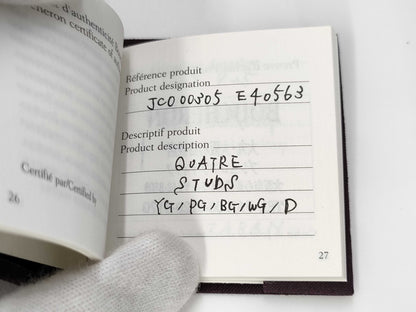 d'authenticité B
cheron certificate of au
Certifié par/Certified by
26
Référence produit
Product designation
JCO00305 E40563
Descriptif produit
Product description
QUATRE
STUDS
YG/PG/BG/WG/D
27